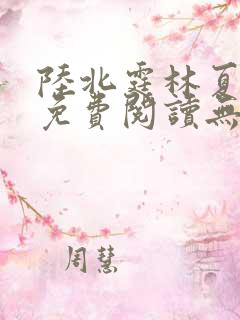 陸北霆林夏
免費閱讀無
周慧